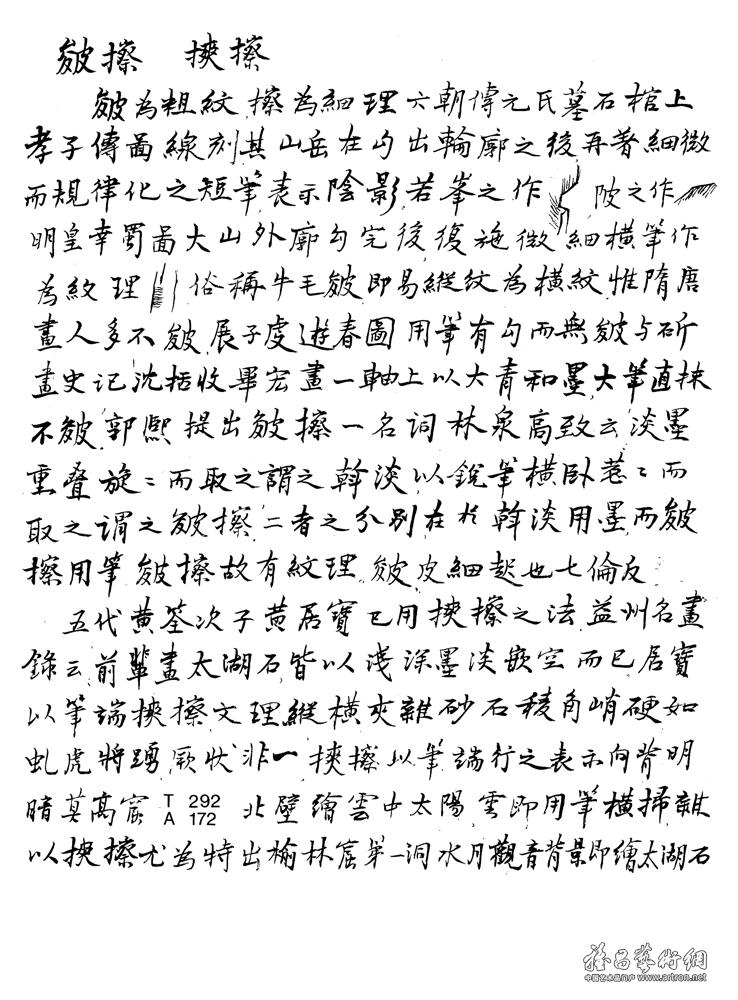 皴擦　挾擦
皴為粗紋 擦為細理 六朝傳元氏墓石棺上
孝子傳畵線刻其山岳在勾出輪廓之後再著細微
而規律化之短筆表示陰影 若峯之作　陂之作
明皇幸蜀畵大山外廓勾完後復施微細橫筆作
為紋理　俗稱牛毛皴即易縱紋為橫紋惟隋唐
畫人多不皴 展子虔遊春圖用筆有勾而無皴与斫
畫史记沈括收畢宏畫一軸上以大青和墨大筆直抹
不皴 郭熙提出皴擦一名词 林泉高致云淡墨
重叠旋〻而取之謂之斡淡以銳筆橫臥惹〻而
取之谓之皴擦 二者之分别在扵斡淡用墨而皴
擦用筆 皴擦故有紋理 皴皮細起也七倫反
五代黄筌次子黄居寶已用挾擦之法 益州名畫
錄云前輩畫太湖石皆以淺深墨淡嵌空而已居寶
以筆端挾擦文理縱橫夾雜砂石稜角峭硬如
虬虎將踴厥狀非一 挾擦以筆端行之表示向背明
暗莫高窟 T 292 A 172 北壁繪雲中太陽 雲即用筆橫掃雜
以挾擦尤為特出榆林窟第一洞水月觀音背景即繪太湖石
雅昌藝術網
中国艺术品门户 www.artron.net